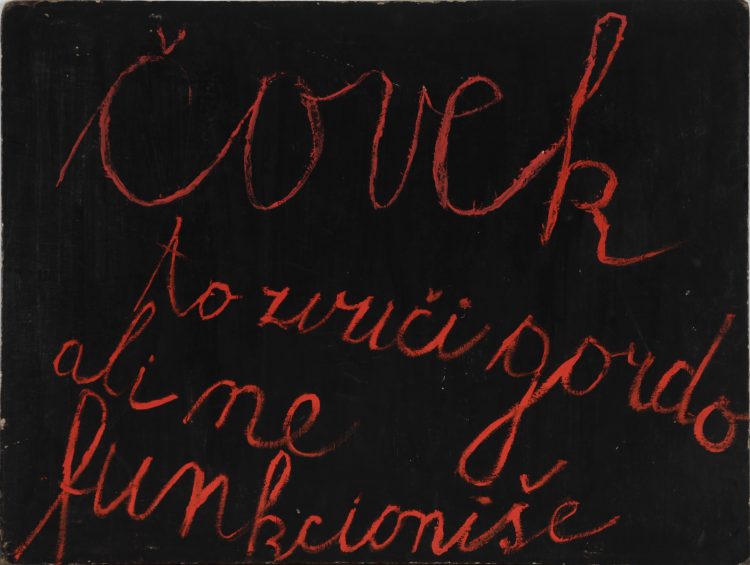 Čovek
to zvuči gordo
ali ne
funkcioniše